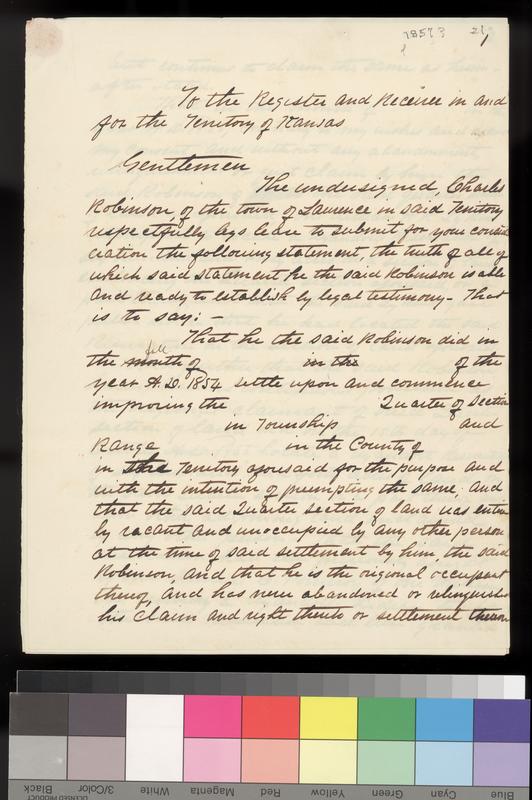 78573 21
To the Register and Receiver in and
for the Territory of Kansas
Gentlemen
The undersigned, Charles
Robinson of the town of Laurence in said Territory
respectfully begs leave to submit for your consid
eration the following statement, the truth of all of
which said statement he the said Robinson is able
and ready to establish by legal testimony - That
is to say: -
That he the said Robinson did in
fall
the month of in the of the
year A.D. 1854 settle upon and commence
improving the Quarter of Section
in Township and
Range in the County of
in the Territory aforesaid for the purpose and
with the intention of preempting the same, and
that the said Quarter section of land was entire
by vacant and unoccupied by any other person
at the time of said settlement by him, the said
Robinson, and that he is the original occupant
thereof, and has never abandoned or relinquished
his claim and right thereto or settlement thereon
Blue Cyan Green Yellow Red Magenta White 3/Color Black
LICENSED PRODUCT